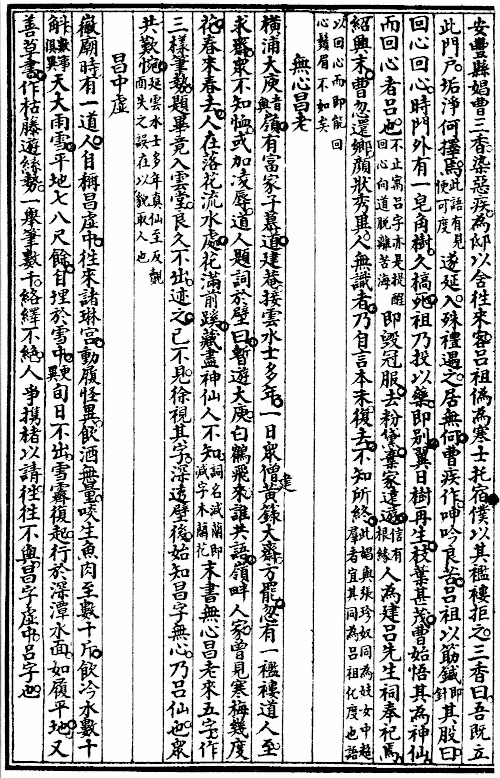 安豐縣娼曹三香染惡疾為邸以舍往來客呂祖偽為寒士托宿僕以其襤褸拒之三香曰吾既立
此門戶垢淨何擇焉此語有見便可度遂延入殊禮遇之居無何曹疾作呻吟良苦呂祖以筋鍼即針其股曰
回心回心時門外有一皂角樹久槁死祖乃投以藥即別翼日樹再生枝葉甚茂曹始悟其為神仙
而回心者呂也不止寓呂字亦是提醒回心向道脫離苦海即毀冠服去粉黛棄家遠遊信有根緣人為建呂先生祠奉祀焉
紹興末曹忽還鄉顏狀秀異人無識者乃自言本末復去不知所終此娼與張珍奴同為妓女中超羣者宜其同為呂祖化度也語
以回心而即能回心鬚眉不如矣
無心昌老
橫浦大庾嶺有富家子慕道建菴接雲水士多年一日眾僧建黃籙大齋方罷忽有一襤褸道人至
求齋眾不知恤或加凌辱道人題詞於壁曰暫遊大庾白鶴飛來誰共語嶺畔人家曾見寒梅幾度
花春來春去人在落花流水處花滿前蹊藏盡神仙人不知詞名減蘭即減字木蘭花末書無心昌老來五字作
三樣筆勢題畢竟入雲堂良久不出迹之已不見徐視其字深透壁後始知昌字無心乃呂仙也眾
共歎惋延雲水士多年真仙至反覿面失之誤在以貌取人也
昌中虛
嶽廟時有一道人自稱昌虛中往來諸琳宮動履怪異飲酒無量啖生魚肉至數十斤飲冷水數十
斛數事俱異天大雨雪平地七八尺餘自埋於雪中更異旬日不出雪霽復起行於深潭水面如履平地又
善草書作枯藤遊絲勢一舉筆數千絡繹不絕人爭攜楮以請往往不與昌字虛中呂字也